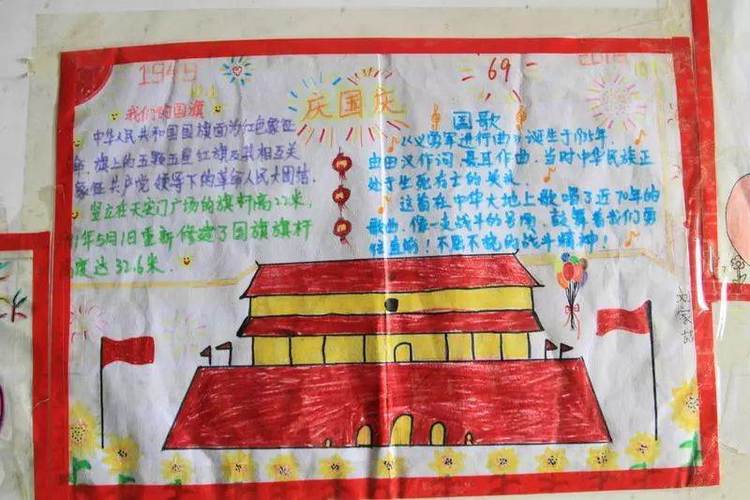 1949
69
庆国庆
我们的国旗
中华人民共和国国旗面为红色象征
旗上的五颗五星红旗及其相互关
象征共产党领导下的革命人民大团结.
竖立在天安门广场的旗杆高22米,
1年5月1日重新修建了国旗旗杆
高度这32.6米.
国歌
《义勇军进行曲》诞生于
由田汉作词,聂耳作曲.当时中华民族正
处于生死存亡的关头.
这首在中华大地上歌唱了近70年的
歌曲.像一支战斗的号角,鼓舞着我们勇
往直前!不屈不挠的战斗精神!